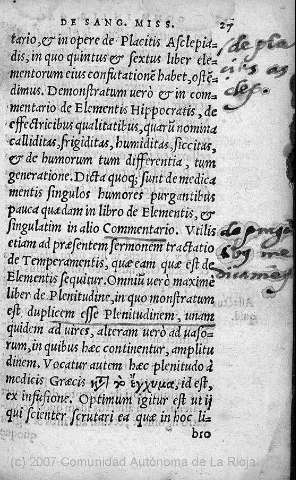 DE SANG. MISS. 27
tario, & in opere de Placitis Asclepia-
dis, in quo quintus & sextus liber ele-
mentorum eius confutationē habet, ostē-
dimus. Demonstratum verò & in com-
mentario de Elementis Hippocratis, de
effectricibus qualitatibus, quarū nomina
calliditas, frigiditas, humiditas, siccitas,
& de humorum tum differentia, tum
generatione. Dicta quoq; sunt de medica
mentis singulos humores purgantibus
pauca quædam in libro de Elementis, &
singulatim in alio Commentario. Vtilis
etiam ad præsentem sermonem tractatio
de Temperamentis, quæ eam quæ est de
Elementis sequitur. Omniū verò maximè
liber de Plenitudine, in quo monstratum
est duplicem esse Plenitudinem, unam
quidem ad uires, alteram verò ad uaso-
rum, in quibus hæc continentur, amplitu
dinem. Vocatur autem hæc plenitudo à
medicis Græcis τὸ ἔγχυμα, id est,
ex infusione. Optimum igitur est ut ij
qui scienter scrutari ea quæ in hoc li-
bro
de pla
(c) 2007 Comunidad Autónoma de La Rioja